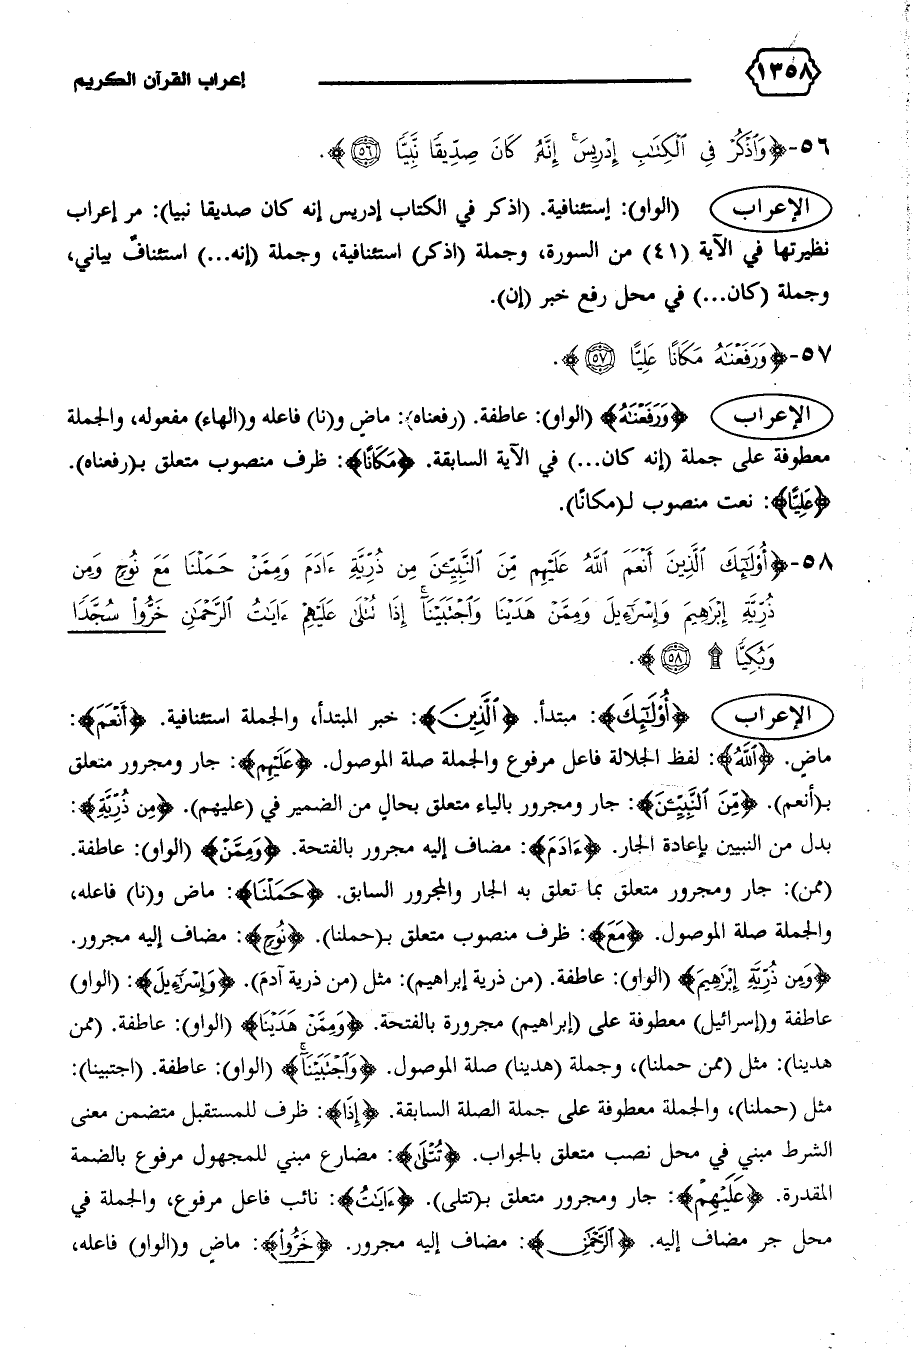 ١٣٥٨ إعراب القرآن الكريم
٥٦-﴿وَٱذْكُرْ فِى ٱلْكِتَٰبِ إِدْرِيسَ ۚ إِنَّهُۥ كَانَ صِدِّيقًا نَّبِيًّا ٥٦﴾.
الإعراب (الواو): إستئنافية. (اذكر في الكتاب إدريس إنه كان صديقا نبيا): مر إعراب
نظيرتها في الآية (٤١) من السورة، وجملة (اذكر) استئنافية، وجملة (إنه...) استئنافٌ بياني،
وجملة (كان...) في محل رفع خبر (إن).
٥٧-﴿وَرَفَعْنَٰهُ مَكَانًا عَلِيًّا ٥٧﴾.
الإعراب ﴿وَرَفَعْنَٰهُ﴾ (الواو): عاطفة. (رفعناه): ماضٍ و(نا) فاعله و(الهاء) مفعوله، والجملة
معطوفة على جملة (إنه كان...) في الآية السابقة. ﴿مَكَانًا﴾: ظرف منصوب متعلق بـ(رفعناه).
﴿عَلِيًّا﴾: نعت منصوب لـ(مكانًا).
٥٨-﴿أُو۟لَٰٓئِكَ ٱلَّذِينَ أَنْعَمَ ٱللَّهُ عَلَيْهِم مِّنَ ٱلنَّبِيِّـۧنَ مِن ذُرِّيَّةِ ءَادَمَ وَمِمَّنْ حَمَلْنَا مَعَ نُوحٍ وَمِن
ذُرِّيَّةِ إِبْرَٰهِيمَ وَإِسْرَٰٓءِيلَ وَمِمَّنْ هَدَيْنَا وَٱجْتَبَيْنَآ ۚ إِذَا تُتْلَىٰ عَلَيْهِمْ ءَايَٰتُ ٱلرَّحْمَٰنِ خَرُّوا۟ سُجَّدًا
وَبُكِيًّا ۩ ٥٨﴾.
الإعراب ﴿أُو۟لَٰٓئِكَ﴾: مبتدأ. ﴿ٱلَّذِينَ﴾: خبر المبتدأ، والجملة استئنافية. ﴿أَنْعَمَ﴾:
ماض. ﴿ٱللَّهُ﴾: لفظ الجلالة فاعل مرفوع والجملة صلة الموصول. ﴿عَلَيْهِم﴾: جار ومجرور متعلق
بـ(أنعم). ﴿مِّنَ ٱلنَّبِيِّـۧنَ﴾: جار ومجرور بالياء متعلق بحال من الضمير في (عليهم). ﴿مِن ذُرِّيَّةِ﴾:
بدل من النبيين بإعادة الجار. ﴿ءَادَمَ﴾: مضاف إليه مجرور بالفتحة. ﴿وَمِمَّنْ﴾ (الواو): عاطفة.
(ممن): جار ومجرور متعلق بما تعلق به الجار والمجرور السابق. ﴿حَمَلْنَا﴾: ماض و(نا) فاعله،
والجملة صلة الموصول. ﴿مَعَ﴾: ظرف منصوب متعلق بـ(حملنا). ﴿نُوحٍ﴾: مضاف إليه مجرور.
﴿وَمِن ذُرِّيَّةِ إِبْرَٰهِيمَ﴾ (الواو): عاطفة. (من ذرية إبراهيم): مثل (من ذرية آدمَ). ﴿وَإِسْرَٰٓءِيلَ﴾: (الواو)
عاطفة و(إسرائيل) معطوفة على (إبراهيم) مجرورة بالفتحة. ﴿وَمِمَّنْ هَدَيْنَا﴾ (الواو): عاطفة. (ممن
هدينا): مثل (ممن حملنا)، وجملة (هدينا) صلة الموصول. ﴿وَٱجْتَبَيْنَآ ۚ﴾ (الواو): عاطفة. (اجتبينا):
مثل (حملنا)، والجملة معطوفة على جملة الصلة السابقة. ﴿إِذَا﴾: ظرف للمستقبل متضمن معنى
الشرط مبني في محل نصب متعلق بالجواب. ﴿تُتْلَىٰ﴾: مضارع مبني للمجهول مرفوع بالضمة
المقدرة. ﴿عَلَيْهِمْ﴾: جار ومجرور متعلق بـ(تتلى). ﴿ءَايَٰتُ﴾: نائب فاعل مرفوع، والجملة في
محل جر مضاف إليه. ﴿ٱلرَّحْمَٰنِ﴾: مضاف إليه مجرور. ﴿خَرُّوا۟﴾: ماضٍ و(الواو) فاعله،